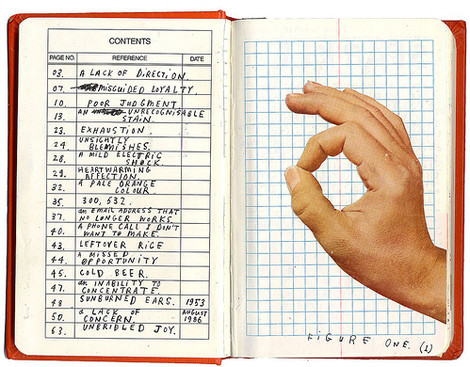 CONTENTS
PAGE NO. REFERENCE DATE
03. A LACK OF DIRECTION.
07. MISGUIDED LOYALTY.
10. POOR JUDGMENT
13. AN UNRECOGNISABLE
STAIN.
23. EXHAUSTION.
24. UNSIGHTLY
BLEMISHES.
28. A MILD ELECTRIC
SHOCK.
29. HEARTWARMING
AFFECTION.
32. A PALE ORANGE
COLOUR.
35. 300,532.
37. an EMAIL ADDRESS THAT
NO LONGER WORKS
40. A PHONE CALL I DON'T
WANT TO MAKE.
43. LEFTOVER RICE
44. A MISSED
OPPORTUNITY
45. COLD BEER.
47. an INABILITY TO
CONCENTRATE.
48 SUNBURNED EARS. 1953
50. a LACK OF AUGUST
CONCERN. 1986
63. UNBRIDLED JOY.
FIGURE ONE.